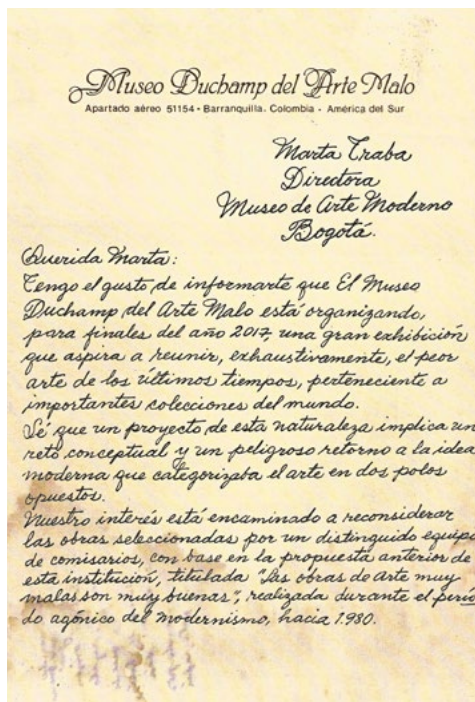 Museo Duchamp del Arte Malo
Apartado aéreo 51154 - Barranquilla. Colombia - América del Sur
Marta Traba
Directora
Museo de Arte Moderno
Bogotá.
Querida Marta:
Tengo el gusto de informarte que El Museo
Duchamp del Arte Malo está organizando,
para finales del año 2017, una gran exhibición
que aspira a reunir, exhaustivamente, el peor
arte de los últimos tiempos, perteneciente a
importantes colecciones del mundo.
Sé que un proyecto de esta naturaleza implica un
reto conceptual y un peligroso retorno a la idea
moderna que categorizaba el arte en dos polos
opuestos.
Nuestro interés está encaminado a reconsiderar
las obras seleccionadas por un distinguido equipo
de comisarios, con base en la propuesta anterior de
esta institución, titulada "Las obras de arte muy
malas son muy buenas", realizada durante el perío
do agónico del modernismo, hacia 1.980.